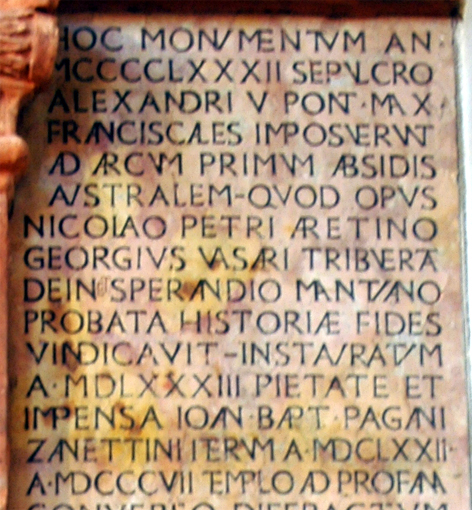 HOC MONVMENTVM AN·
MCCCCLXXXII SEPVLCRO
ALEXANDRI V PONT·MAX·
FRANCISCALES IMPOSVERVNT
AD ARCVM PRIMVM ABSIDIS
AVSTRALEM-QVOD OPVS
NICOLAO PETRI ARETINO
GEORGIVS VASARI TRIBVERAT
DEIN SPERANDIO MANTVANO
PROBATA HISTORIÆ FIDES
VINDICAVIT-INSTAVRATVM
A·MDLXXXIII·PIETATE ET
IMPENSA IOAN·BAPT·PAGANI
ZANETTINI ITERVM A·MDCLXXII·
A·MDCCCVII TEMPLO AD PROFAN
CONVERSO DIFFRACTVM